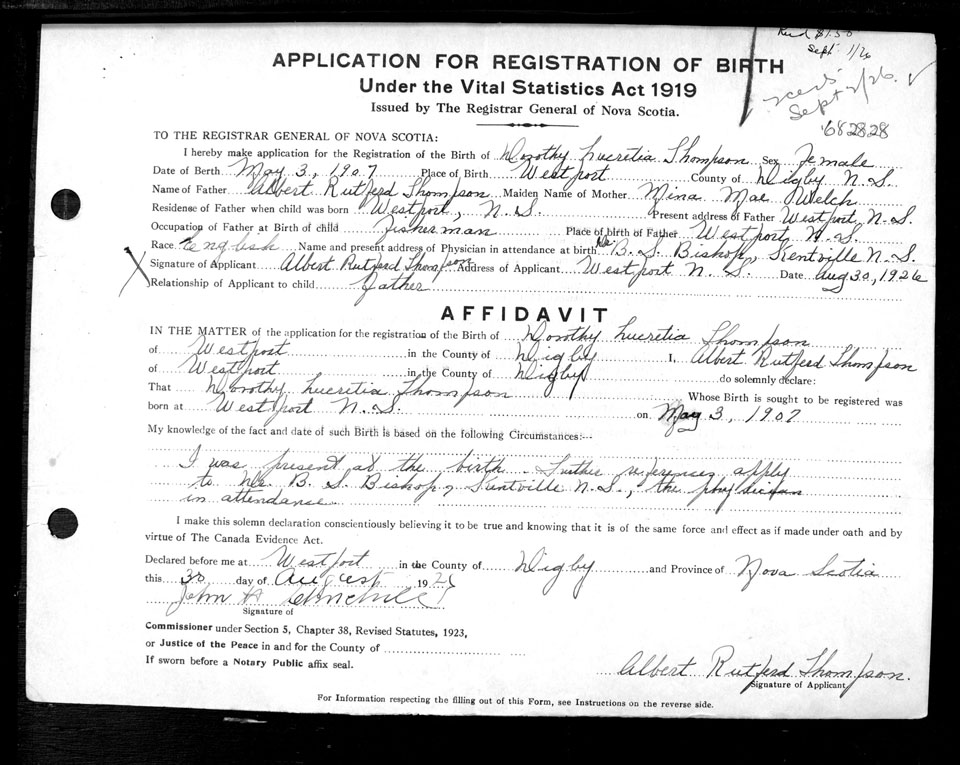 Rec'd $1.50
Sept 1/26
APPLICATION FOR REGISTRATION OF BIRTH
Under the Vital Statistics Act 1919
Sept 2/26
Issued by The Registrar General of Nova Scotia.
682828
TO THE REGISTRAR GENERAL OF NOVA SCOTIA:
I hereby make application for the Registration of the Birth of Dorothy Lucretia Thompson Sex Female
Date of Berth May 3, 1907 Place of Birth Westport County of Digby N.S.
Name of Father Albert Rutferd Thompson Maiden Name of Mother Mina Mae Welch
Residense of Father when child was born Westport, N.S. Present address of Father Westport N.S.
Occupation of Father at Birth of child fisherman Place of birth of Father Westport N.S.
Race English Name and present address of Physician in attendance at birth Dr. B. S. Bishop, Kentville N.S.
Signature of Applicant Albert Rutferd Thompson Address of Applicant Westport N.S. Date Aug 30, 1926
Relationship of Applicant to child father
AFFIDAVIT
IN THE MATTER of the application for the registration of the Birth of Dorothy Lucretia Thompson
of Westport in the County of Digby I, Albert Rutferd Thompson
of Westport in the County of Digby do solemnly declare:
That Dorothy Lucretia Thompson Whose Birth is sought to be registered was
born at Westport N.S. on May 3, 1907
My knowledge of the fact and date of such Birth is based on the following Circumstances:--
I was present at the birth. Further references apply
to Dr. B. S. Bishop, Kentville N.S., the physician
in attendance
I make this solemn declaration conscientiously believing it to be true and knowing that it is of the same force and effect as if made under oath and by
virtue of The Canada Evidence Act.
Declared before me at Westport in the County of Digby and Province of Nova Scotia
this 30 day of August 1926
John H
Signature of
Commissioner under Section 5, Chapter 38, Revised Statutes, 1923,
or Justice of the Peace in and for the County of
If sworn before a Notary Public affix seal.
Albert Rutferd Thompson.
Signature of Applicant
For Information respecting the filling out of this Form, see Instructions on the reverse side.